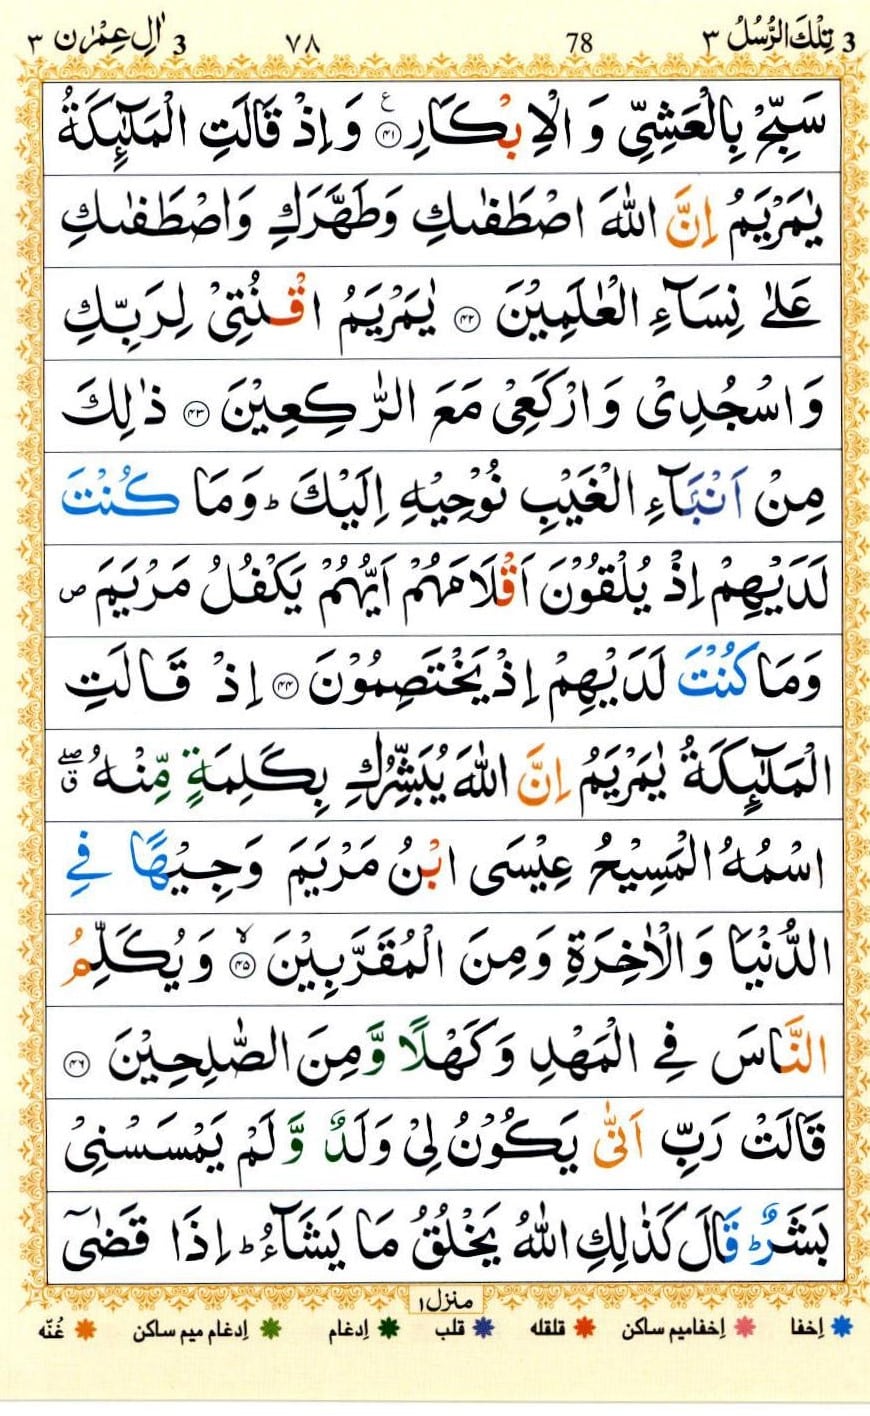 3 تِلْكَ الرُّسُلُ ٣ 78 ٧٨ 3 اٰلِ عِمْرٰن ٣
سَبِّحْ بِالْعَشِیِّ وَ الْاِبْكَارِ ﴿۴۱﴾ ع وَ اِذْ قَالَتِ الْمَلٰٓىِٕكَةُ
یٰمَرْیَمُ اِنَّ اللّٰهَ اصْطَفٰىكِ وَطَهَّرَكِ وَاصْطَفٰىكِ
عَلٰى نِسَآءِ الْعٰلَمِیْنَ ﴿۴۲﴾ یٰمَرْیَمُ اقْنُتِیْ لِرَبِّكِ
وَاسْجُدِیْ وَارْكَعِیْ مَعَ الرّٰكِعِیْنَ ﴿۴۳﴾ ذٰلِكَ
مِنْ اَنْۢبَآءِ الْغَیْبِ نُوْحِیْهِ اِلَیْكَ ؕ وَمَا كُنْتَ
لَدَیْهِمْ اِذْ یُلْقُوْنَ اَقْلَامَهُمْ اَیُّهُمْ یَكْفُلُ مَرْیَمَ ۪
وَمَا كُنْتَ لَدَیْهِمْ اِذْ یَخْتَصِمُوْنَ ﴿۴۴﴾ اِذْ قَالَتِ
الْمَلٰٓىِٕكَةُ یٰمَرْیَمُ اِنَّ اللّٰهَ یُبَشِّرُكِ بِكَلِمَةٍ مِّنْهُ ۖۗ
اسْمُهُ الْمَسِیْحُ عِیْسَى ابْنُ مَرْیَمَ وَجِیْهًا فِی
الدُّنْیَا وَالْاٰخِرَةِ وَمِنَ الْمُقَرَّبِیْنَ ﴿۴۵﴾ ۙ وَیُكَلِّمُ
النَّاسَ فِی الْمَهْدِ وَكَهْلًا وَّمِنَ الصّٰلِحِیْنَ ﴿۴۶﴾
قَالَتْ رَبِّ اَنّٰى یَكُوْنُ لِیْ وَلَدٌ وَّلَمْ یَمْسَسْنِیْ
بَشَرٌ ؕ قَالَ كَذٰلِكِ اللّٰهُ یَخْلُقُ مَا یَشَآءُ ؕ اِذَا قَضٰۤى
منزل ۱
اِخفا اِخفا میم ساکن قلقله قلب اِدغام اِدغام میم ساکن غُنّه